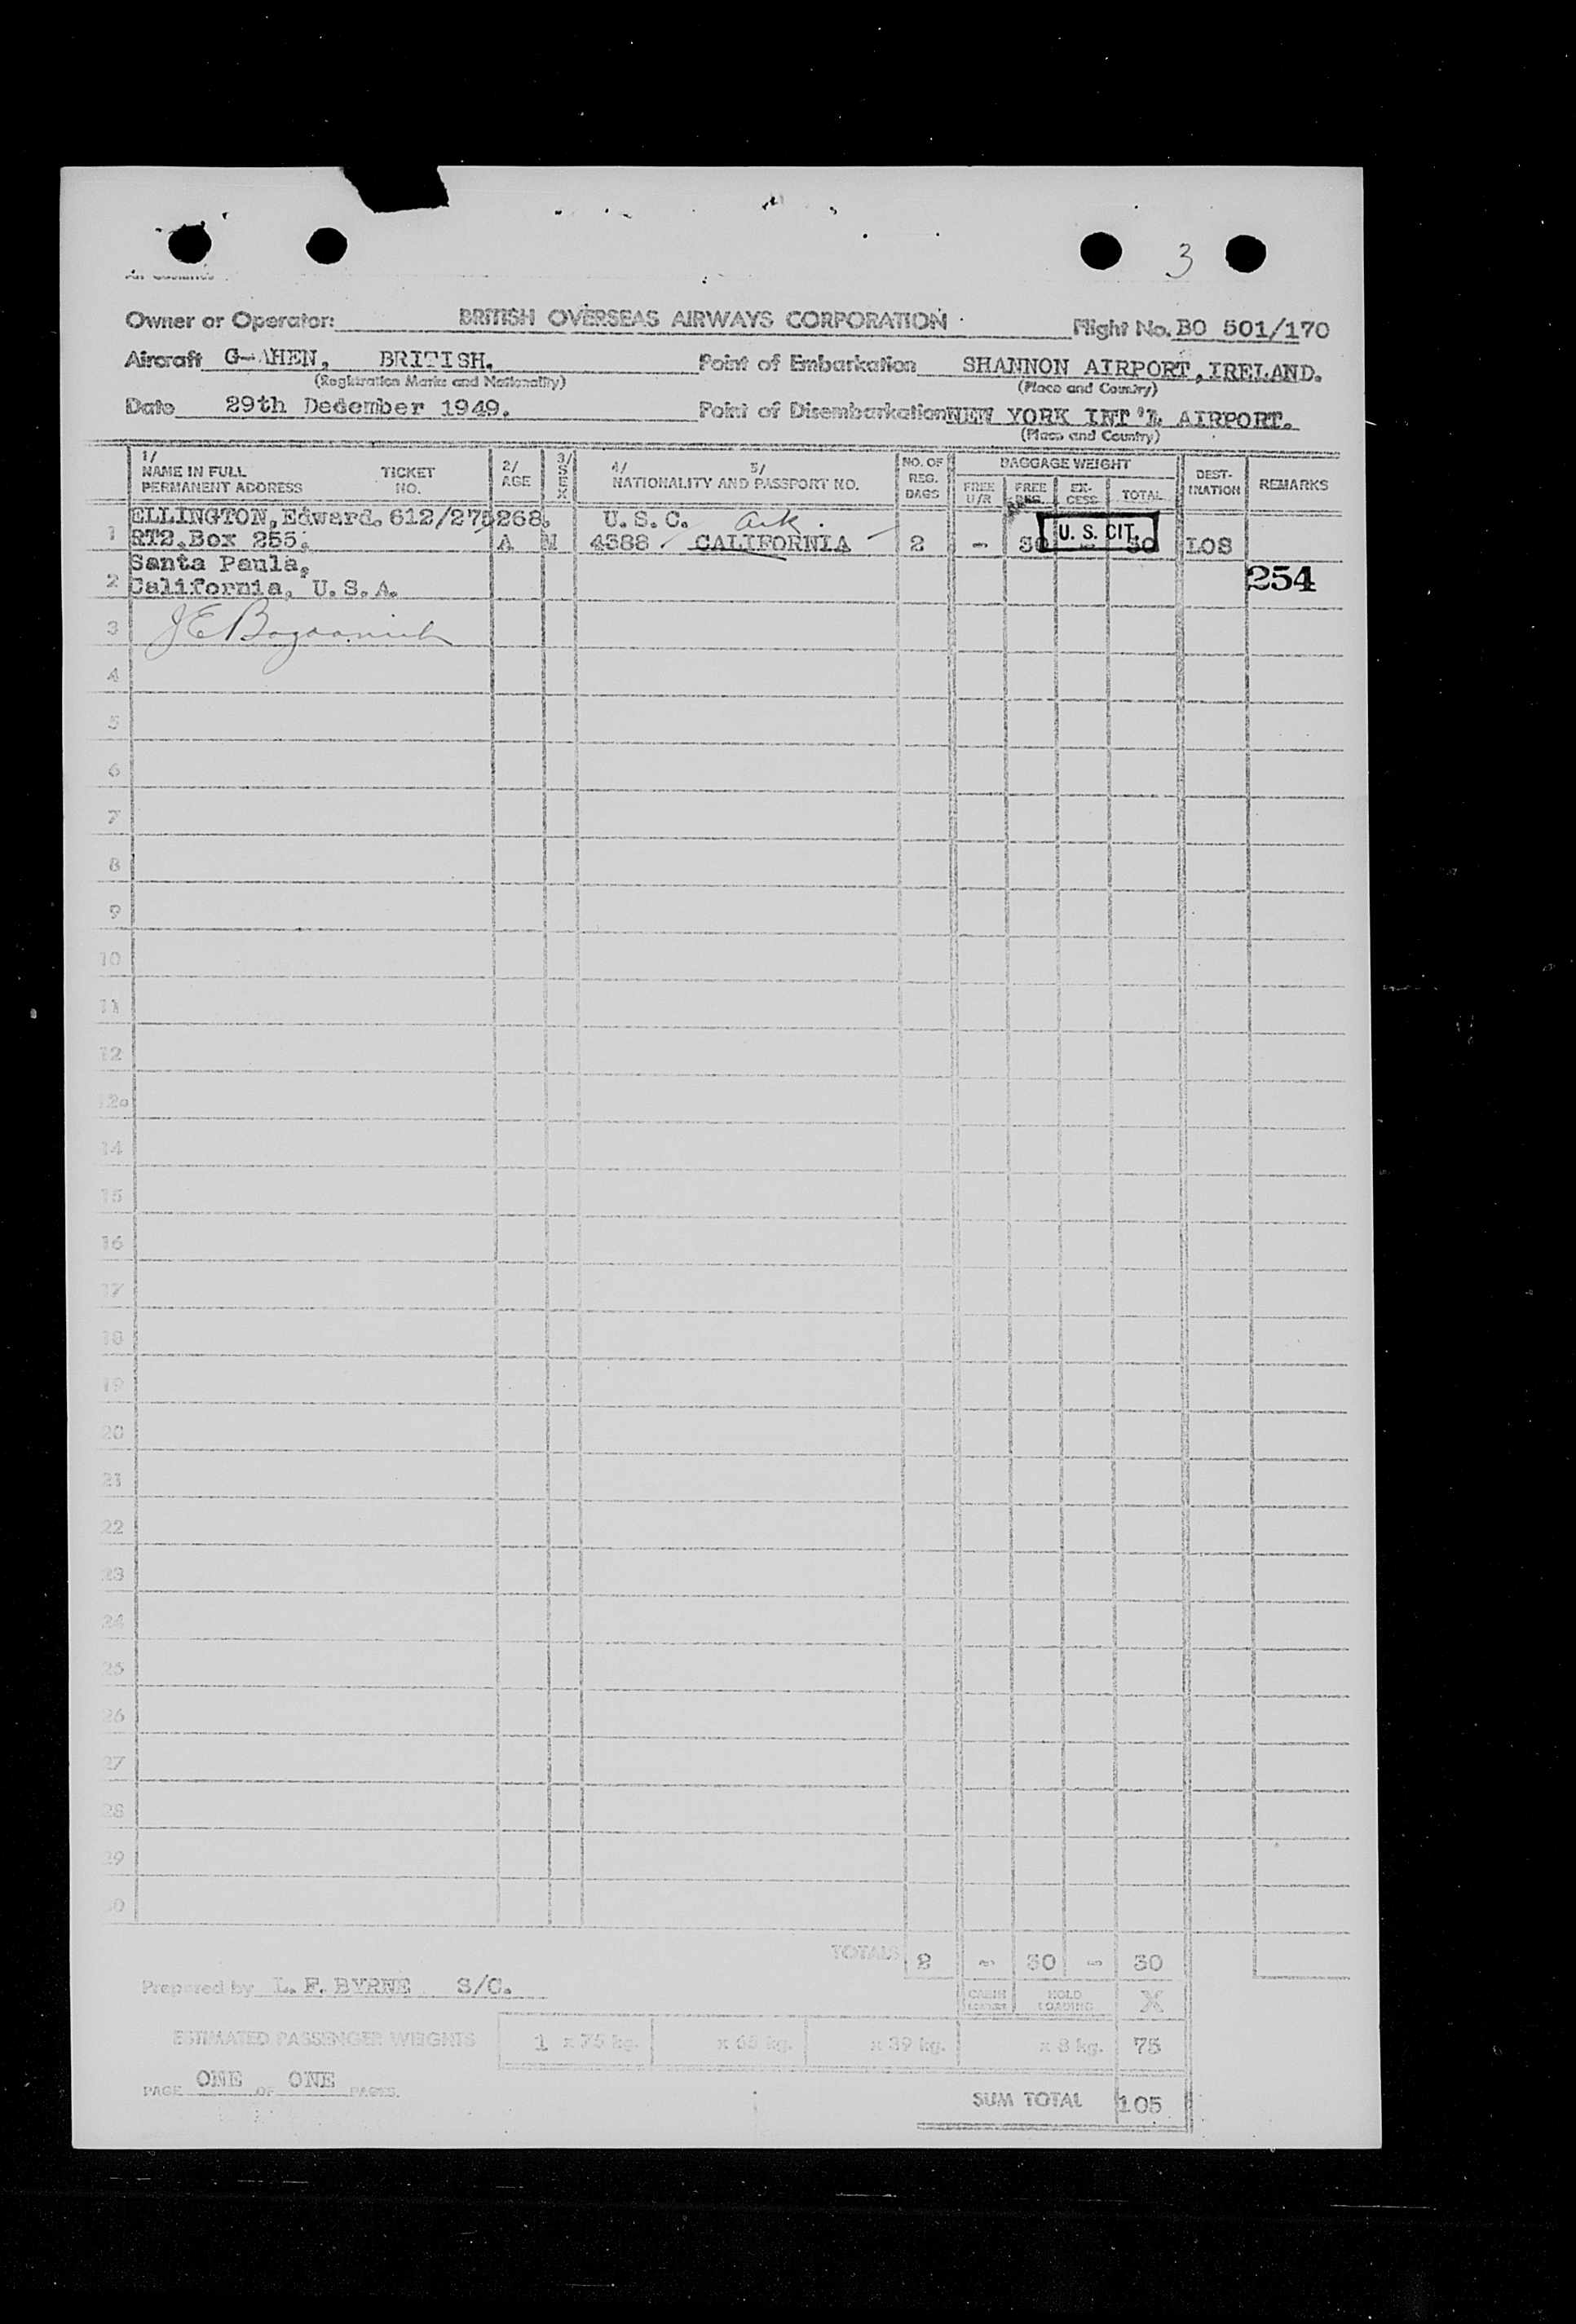 3
Owner or Operator: BRITISH OVERSEAS AIRWAYS CORPORATION Flight No. BO 501/170
Aircraft G-AHEN, BRITISH. Point of Embarkation SHANNON AIRPORT, IRELAND.
(Registration Marks and Nationality) (Place and Country)
Date 29th December 1949. Point of Disembarkation NEW YORK INT'L AIRPORT.
(Place and Country)
1/ NAME IN FULL PERMANENT ADDRESS TICKET NO. 2/ AGE 3/ SEX 4/ 5/ NATIONALITY AND PASSPORT NO. NO. OF REG. BAGS BAGGAGE WEIGHT FREE U/R FREE REG. EX-CESS TOTAL DEST-INATION REMARKS
ELLINGTON, Edward. 612/275268. U.S.C. Ark.
1 RT2, Box 255, A M 4388 CALIFORNIA 2 - 30 U. S. CIT. 30 LOS
Santa Paula,
2 California, U.S.A. 254
3
4
5
6
7
8
9
10
11
12
12a
14
15
16
17
18
19
20
21
22
23
24
25
26
27
28
29
30
TOTALS 2 - 30 - 30
Prepared by L. F. BYRNE S/C. HOLD LOADING X
ESTIMATED PASSENGER WEIGHTS 1 x 75 kg. x 65 kg. x 39 kg. x 8 kg. 75
PAGE ONE OF ONE PAGES.
SUM TOTAL 105